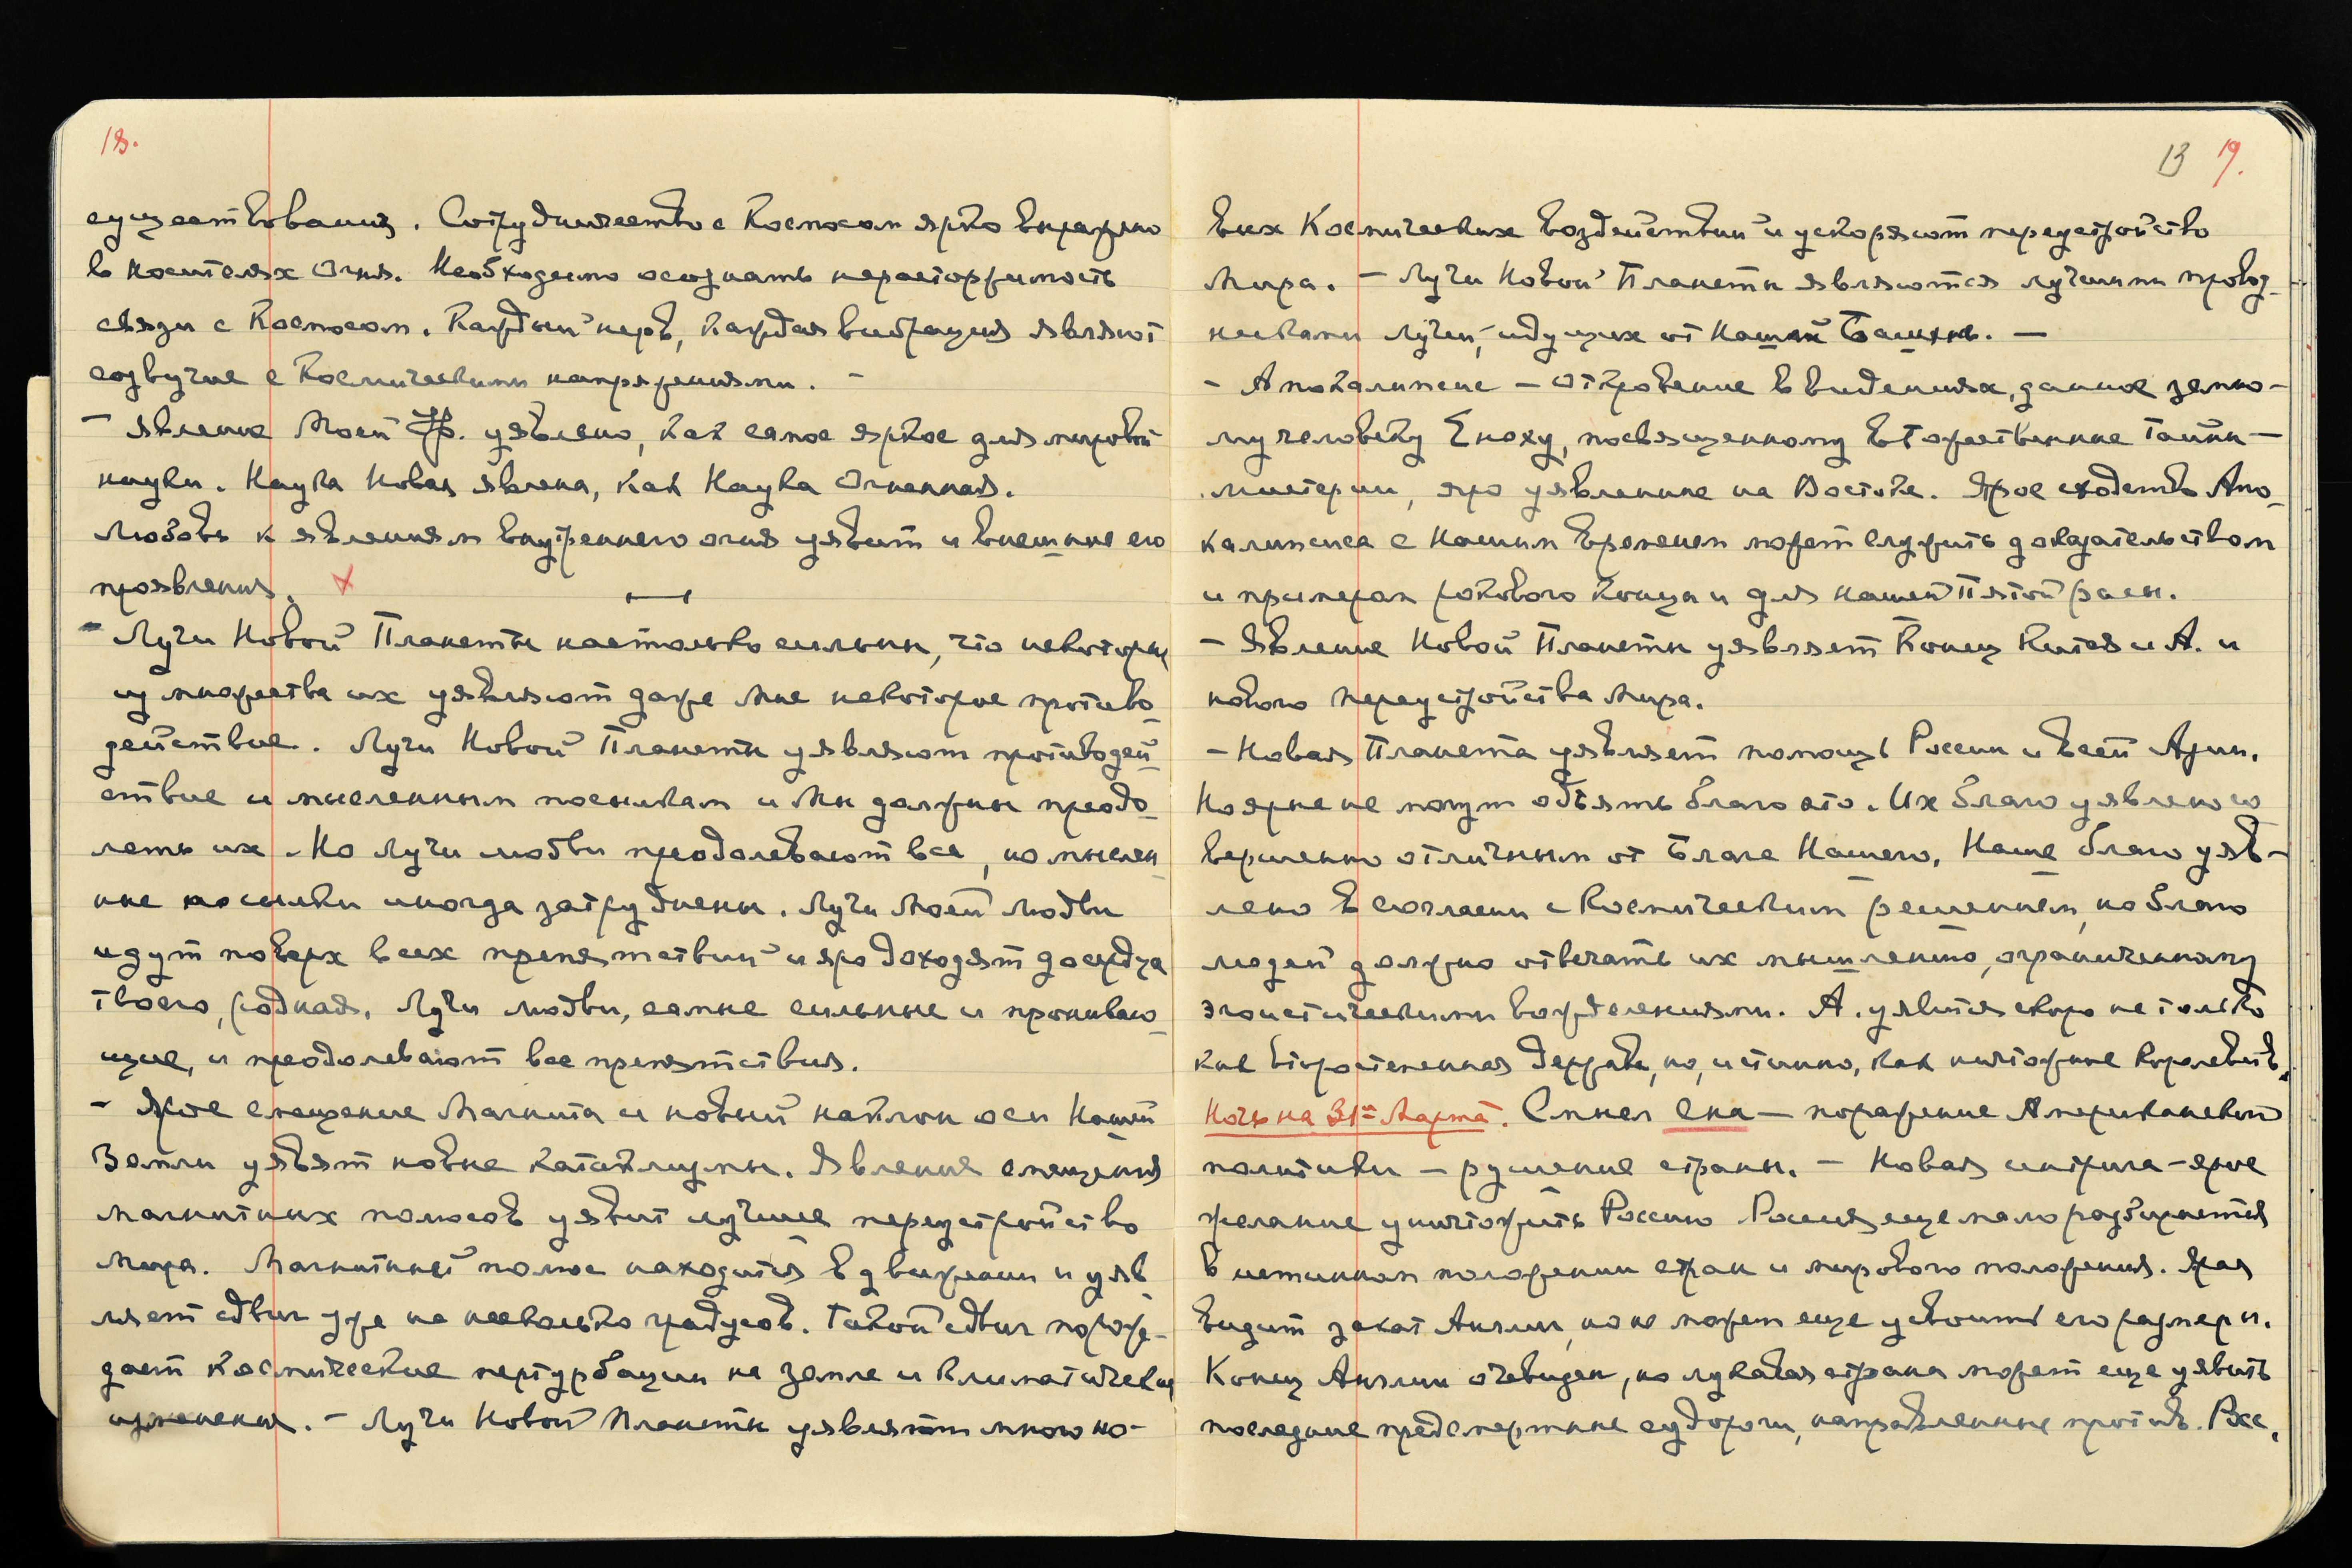 18.
существования. Сотрудничество с Космосом ярко выражено
в носителях Огня. Необходимо осознать нерасторжимость
связи с Космосом. Каждый нерв, каждая вибрация являют
созвучие с Космическими напряжениями. –
– Явление Моей Ур. уявлено, как самое яркое для мировой
науки. Наука Новая явлена, как Наука Огненная.
Любовь к явлениям внутреннего огня уявит и внешние его
проявления.
– Лучи Новой Планеты настолько сильны, что некоторые
из множества их уявляют даже Мне некоторое противо-
действие. Лучи Новой Планеты уявляют противодей-
ствие и мысленным посылкам и Мы должны преодо-
леть их. Но Лучи любви преодолевают все, но мыслен-
ные посылки иногда затруднены. Лучи Моей Любви
идут поверх всех препятствий и яро доходят до сердца
твоего, родная. Лучи любви, самые сильные и проникаю-
щие, и преодолевают все препятствия.
– Ярое смещение Магнита и новый наклон оси Нашей
Земли уявят новые катаклизмы. Явление смещения
магнитных полюсов уявит лучшее переустройство
Мира. Магнитный полюс находится в движении и уяв-
ляет сдвиг уже на несколько градусов. Такой сдвиг порож-
дает Космические пертурбации на земле и Климатические
изменения. – Лучи Новой Планеты уявляют много но-
13 19.
вых Космических Воздействий и ускоряют переустройство
Мира. – Лучи Новой Планеты являются лучшими провод-
никами Лучей, идущих от Нашей Башни. –
– Апокалипсис – Откровение в видениях, данное земно-
му человеку Еноху, посвященному в Тожественные Тайны –
мистерии, яро уявленные на Востоке. Ярое сходство Апо-
калипсиса с Нашим Временем может служить доказательством
и примером рокового Конца и для нашей Пятой расы.
– Явление Новой Планеты уявляет Конец Китая и А. и
нового Переустройства Мира.
– Новая Планета уявляет помощь России и всей Азии.
Но ярые не могут объять благо это. Их благо уявлено со-
вершенно отличным от Блага Нашего. Наше благо уяв-
лено в согласии с Космическим решением, но благо
людей должно отвечать их мышлению, ограниченному
эгоистическими вожделениями. А. уявится скоро не только
как второстепенная Держава, но, истинно, как ничтожные Королевств.
Ночь на 31ое Марта. Смысл Сна – поражение Американской
политики – рушение страны. – Новая интрига – ярое
желание уничтожить Россию. Россия еще мало разбирается
в истинном положении стран и мирового положения. Ярая
видит закат Англии, но не может еще усвоить его размеры.
Конец Англии очевиден, но лукавая страна может еще уявить
последние предсмертные судороги, направленные против. Рос-